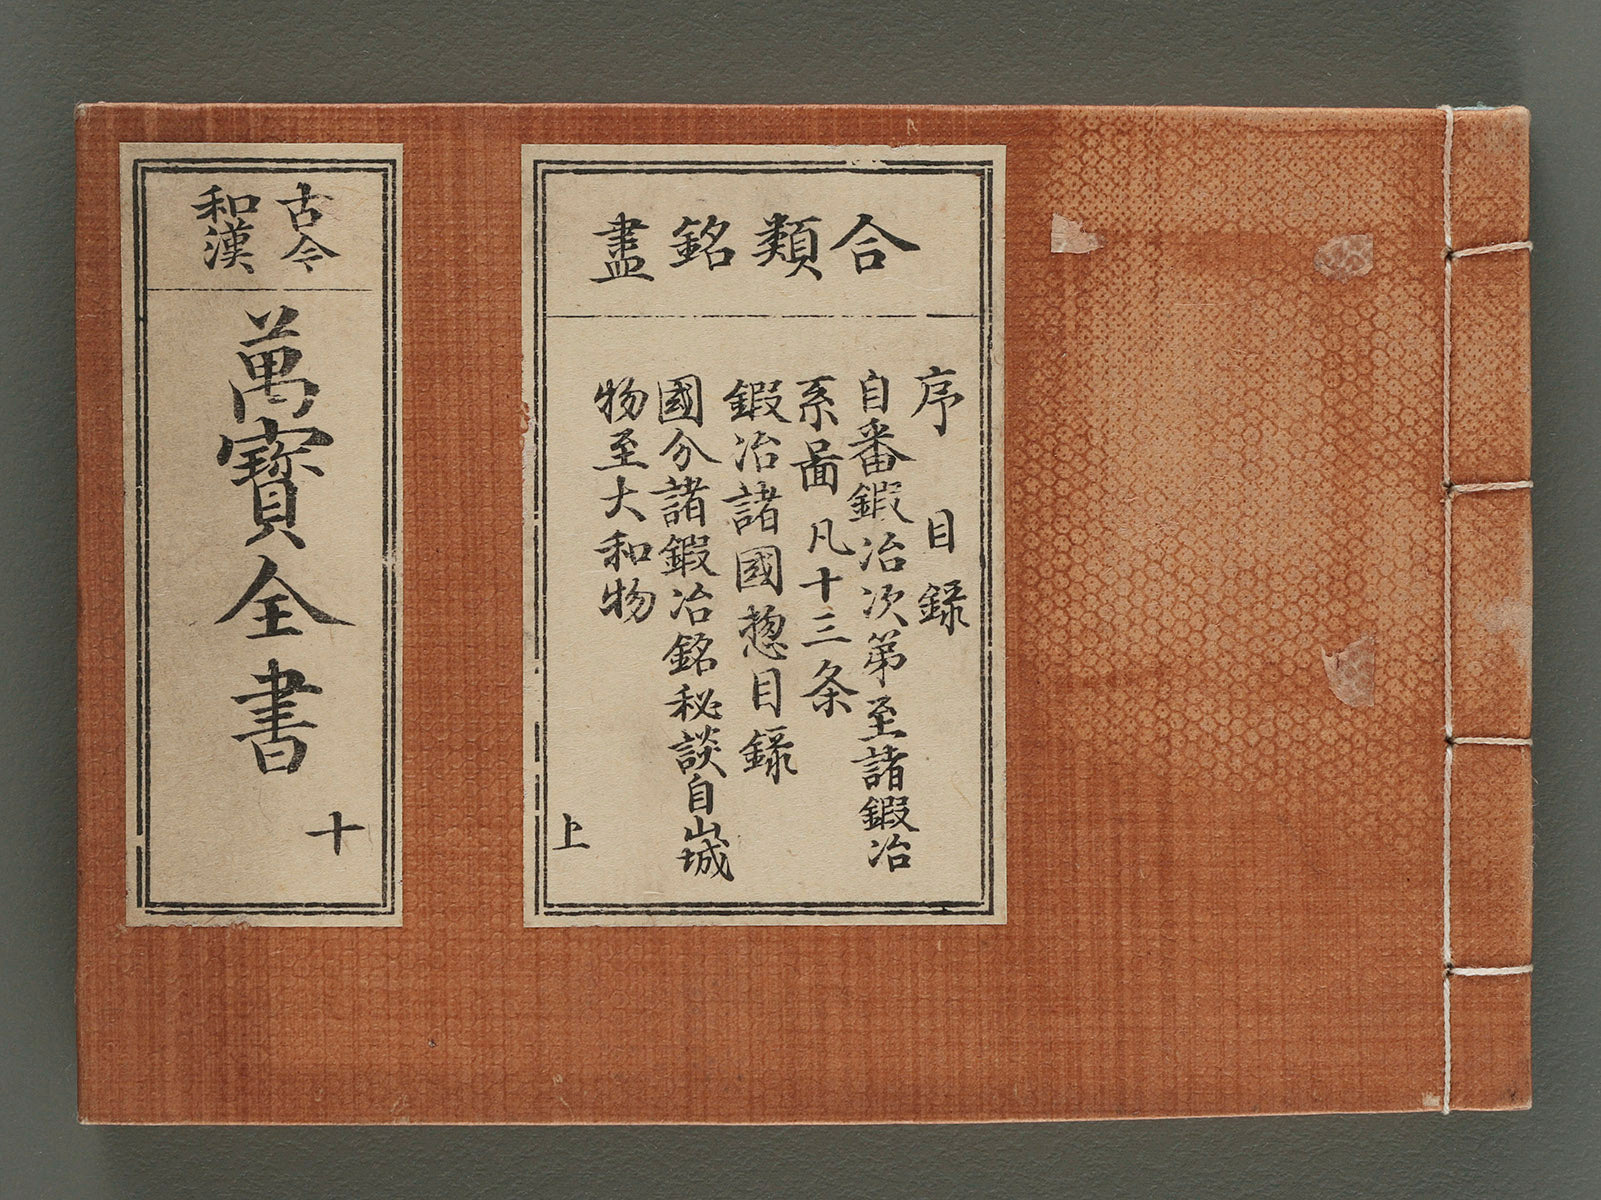 合類銘盡
序 目錄
自番鍜冶次第至諸鍜冶
系啚凡十三条
鍜冶諸國惣目錄
國分諸鍜冶銘秘談自山城
物至大和物
上
古今
和漢
萬寳全書
十